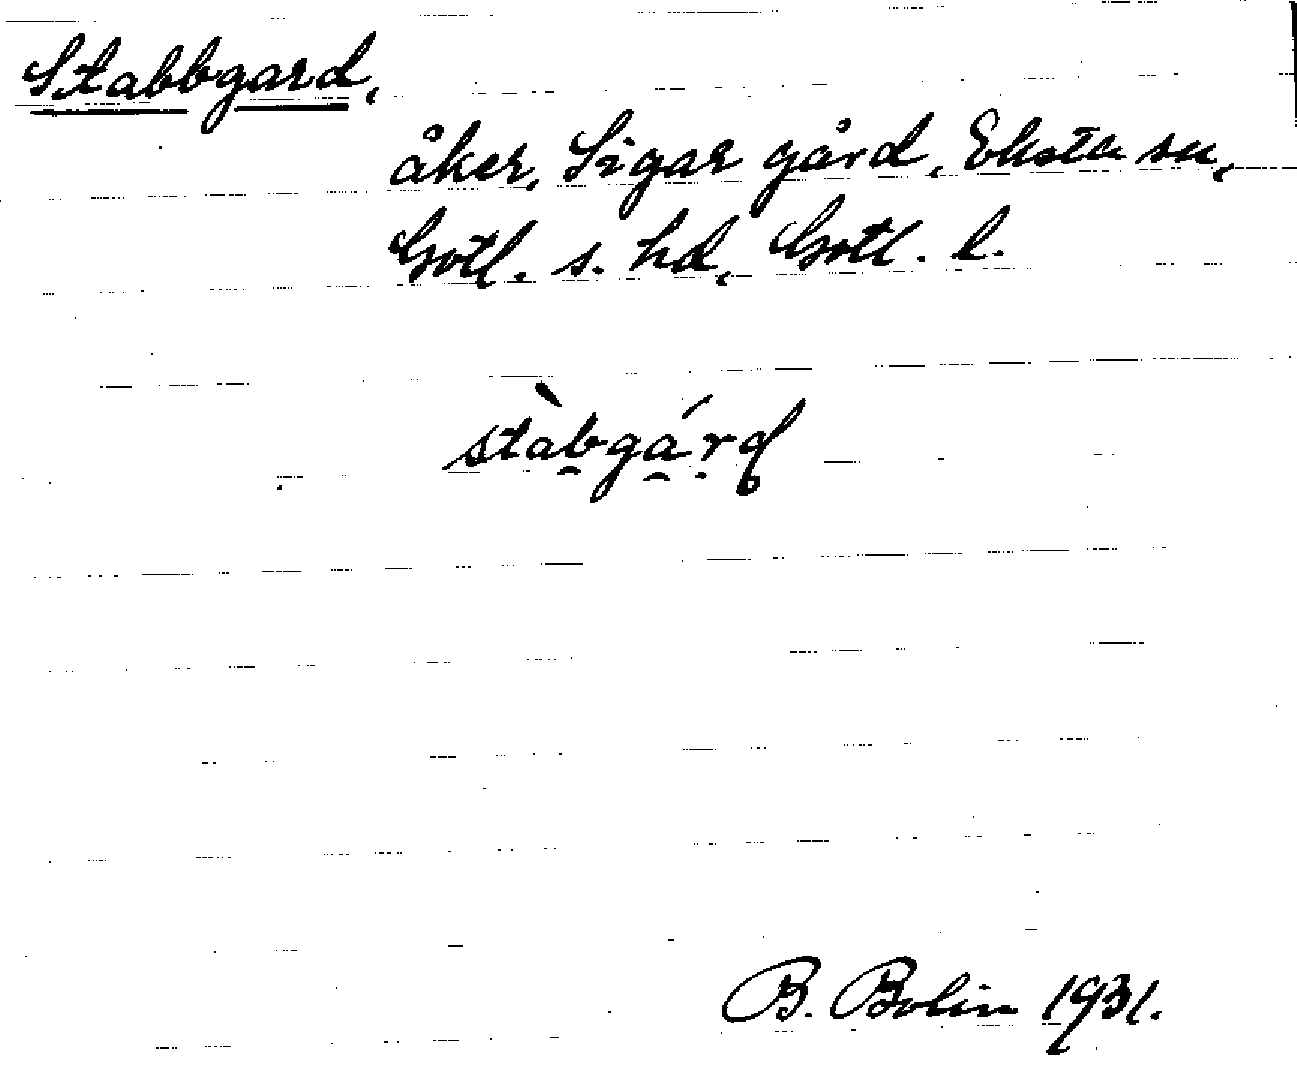 Stabbgard,
åker, Sigar gård, Eksta sn,
Gotl. s. hd, Gotl. l.
stàbgárd
B. Bolin 1931.